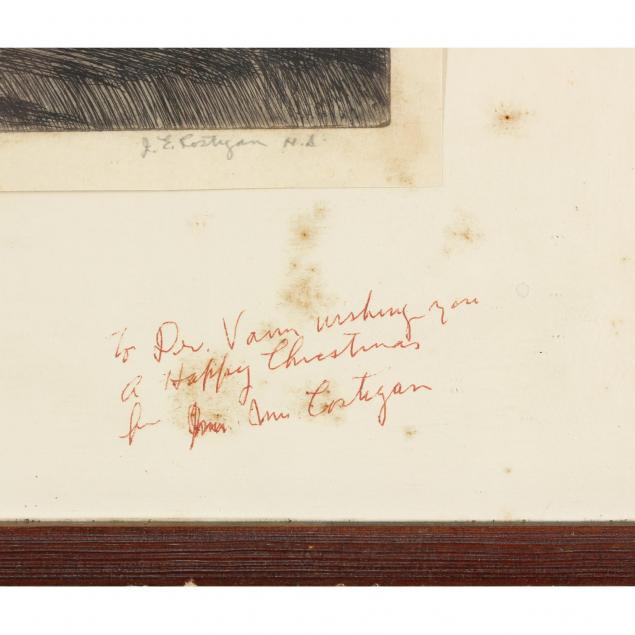 J. E. Costigan N.A.
To Dr. Vann wishing you
a Happy Christmas
Mrs. Costigan